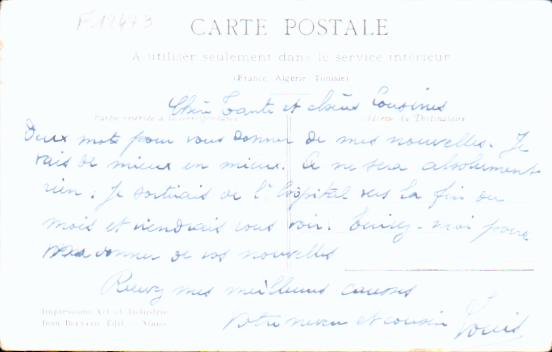 F 12473
CARTE POSTALE
A utiliser seulement dans le service intérieur
(France, Algérie, Tunisie)
Chère Tante et chères Cousines
Partie réservée à la correspondance
Adresse du Destinataire
Deux mots pour vous donner de mes nouvelles. Je
vais de mieux en mieux. Ce ne sera absolument
rien. Je sortirais de l'hôpital vers la fin du
mois et viendrais vous voir. Ecrivez-moi pour
me donner de vos nouvelles
Recevez mes meilleures caresses
Votre neveu et cousin Louis
Impressions Art et Industrie
Jean Edit. - Nîmes